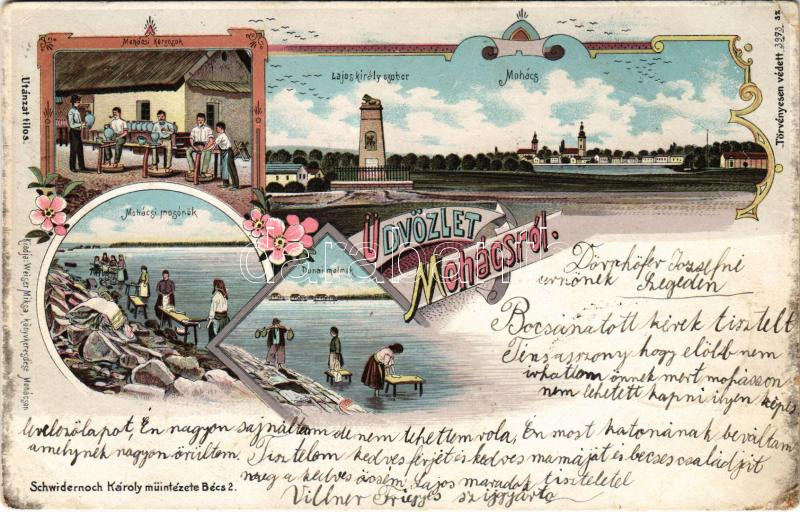 Mohácsi Korsosok
Lajos király szobor
Mohács
Utánzat tilos.
Törvényesen védett 3993 sz
Mohácsi mosónők
Dunai malmok
ÜDVÖZLET
Mohácsról.
Kiadja: Weiser Miksa könyvkereskedése Mohácson
darabanth
Dörrhöfer Jozsefné
urnőnek Szegeden
Bocsánatott kérek tisztelt
Tinsasszony hogy elöbb nem
irhattam önnek mert mohásson
nem lehetett kapni ilyen képes
levelezőlapot, Én nagyon sajnáltam de nem tehettem vola, Én most katonának beváltam
amelynek nagyon örültem. Tisztelom kedves férjét és kedves mamáját és becses családját
meg a kedves öcsém Lajos maradok tisztelétel
Villner Frigyes szijgyártó
Schwidernoch Károly müintézete Bécs 2.